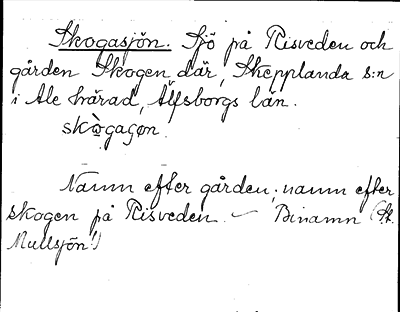 Skogasjön. Sjö på Risveden och
gården Skogen där, Skepplanda s:n
i Ale härad, Älfsborgs län.
skògaʃøn.
Namn efter gården; namn efter
skogen på Risveden. — Binamn (St.
Mullsjön!)